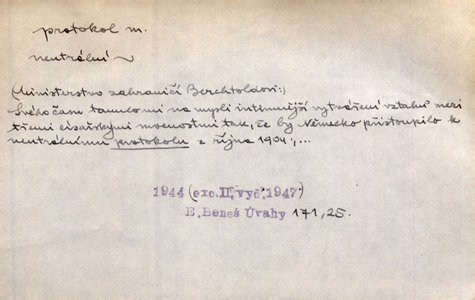 protokol m.
neutrální ~
(Ministerstvo zahraničí Berchtoldovi:)
Svého času tanulo mi na mysli intimnější vytváření vztahů mezi
třemi císařskými mocnostmi tak, že by Německo přistoupilo k
neutrálnímu protokolu z října 1904;...
1944 (exc. II. vyd. 1947)
E. Beneš Úvahy 171, 25.